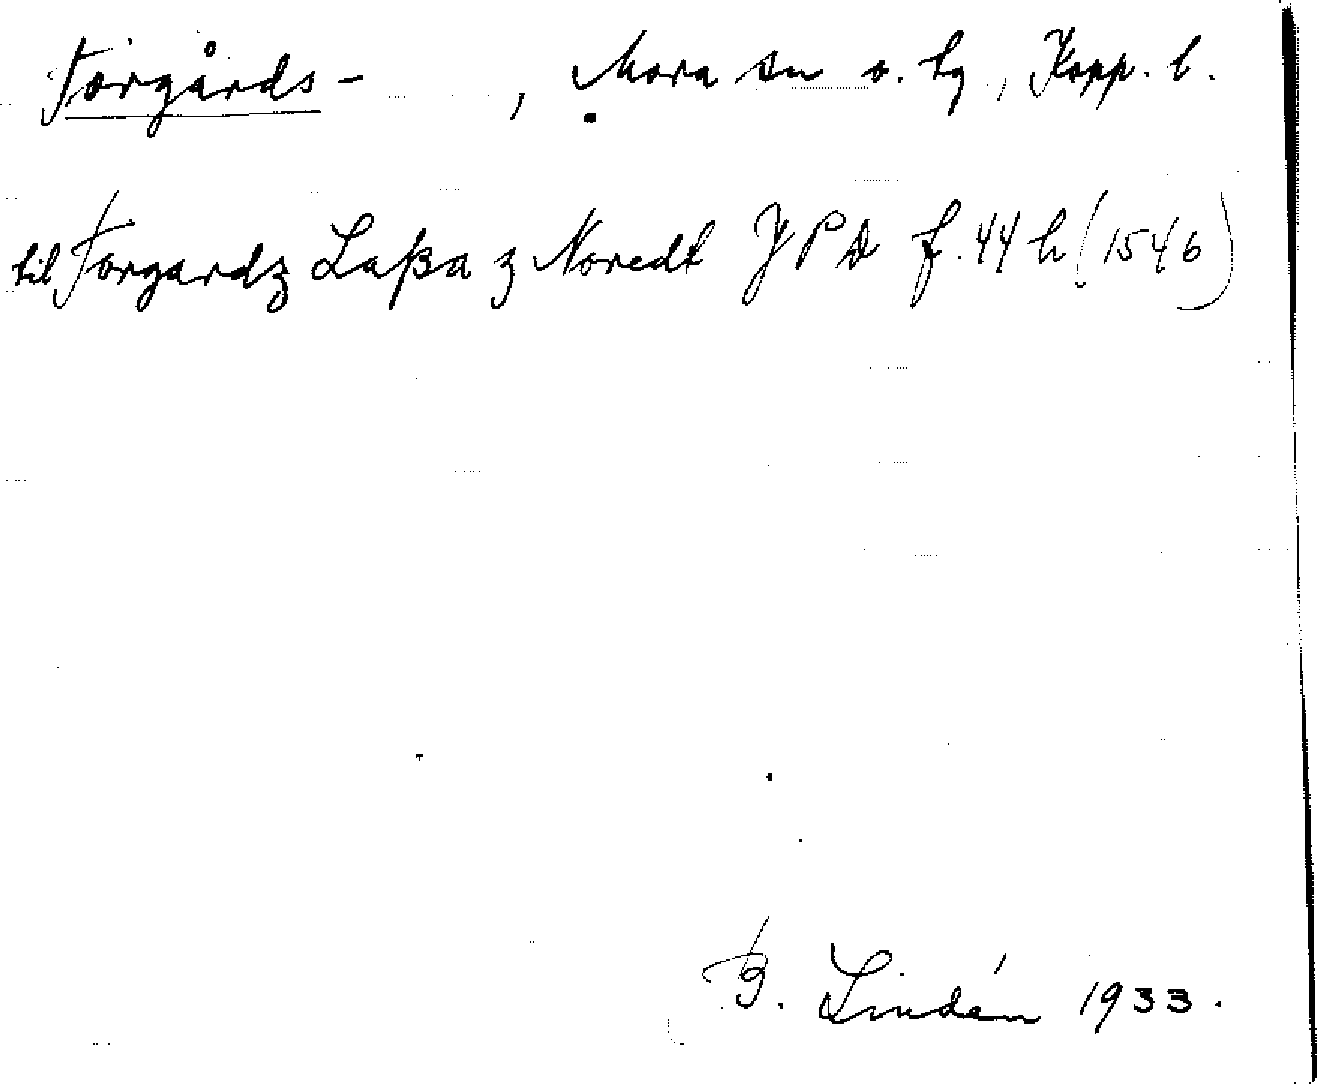 Torgårds- , Mora sn o. hg, Kopp. l.
til Torgardz Laßa ȝ Noredt JPD f. 44 h (1546)
B. Lindén 1933.